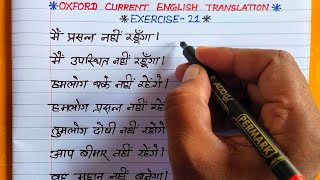 *OXFORD CURRENT ENGLISH TRANSLATION*
*EXERCISE-21*
मैं प्रसन्न नहीं रहूँगा।
मैं उपस्थित नहीं रहूँगा।
हमलोग थके नहीं रहेंगे।
हमलोग प्रसन्न नहीं रहें
तुमलोग दोषी नहीं रहोगे
आप बीमार नहीं रहेंगे।
वह महान नहीं बनेगा।
ADD
PERMARK